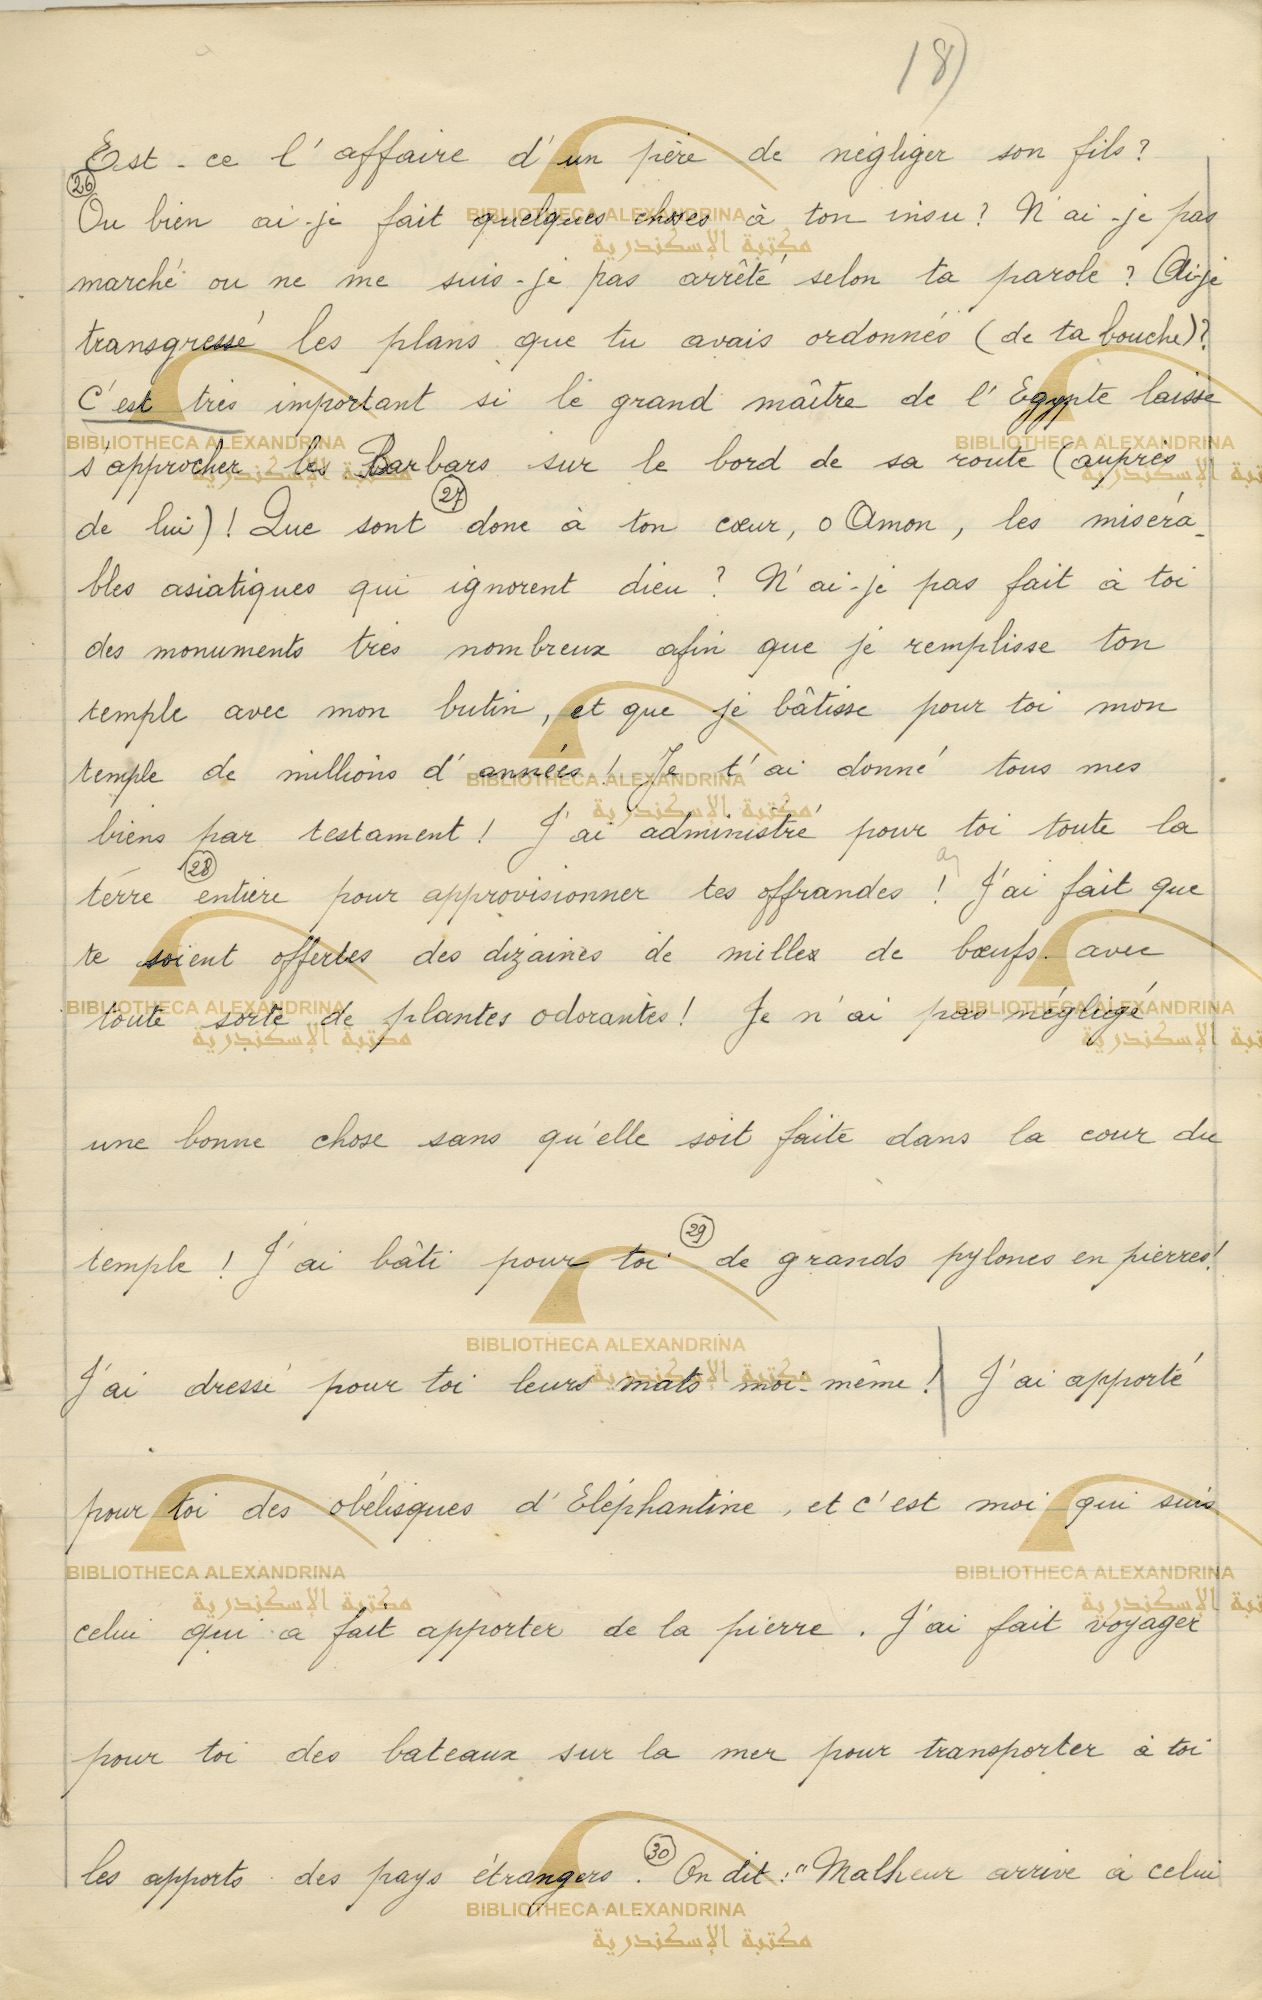 18)
Est-ce l'affaire d'un père de négliger son fils?
(26)
Ou bien ai-je fait quelques choses à ton insu? N'ai-je pas
marché ou ne me suis-je pas arrêté selon ta parole? Ai-je
transgressé les plans que tu avais ordonnés (de ta bouche)?
C'est très important si le grand maître de l'Egypte laisse
s'approcher les Barbars sur le bord de sa route (auprès
de lui)! Que sont (27) donc à ton cœur, o Amon, les miséra-
bles asiatiques qui ignorent dieu? N'ai-je pas fait à toi
des monuments très nombreux afin que je remplisse ton
temple avec mon butin, et que je bâtisse pour toi mon
temple de millions d'années! Je t'ai donné tous mes
biens par testament! J'ai administré pour toi toute la
terre (28) entière pour approvisionner tes offrandes! J'ai fait que
te soient offertes des dizaines de milles de bœufs avec
toute sorte de plantes odorantes! Je n'ai pas négligé
une bonne chose sans qu'elle soit faite dans la cour du
temple! J'ai bâti pour toi (29) de grands pylones en pierres!
J'ai dressé pour toi leurs mats moi-même! J'ai apporté
pour toi des obélisques d'Eléphantine, et c'est moi qui suis
celui qui a fait apporter de la pierre. J'ai fait voyager
pour toi des bateaux sur la mer pour transporter à toi
les apports des pays étrangers. (30) On dit: "Malheur arrive à celui
BIBLIOTHECA ALEXANDRINA
مكتبة الإسكندرية